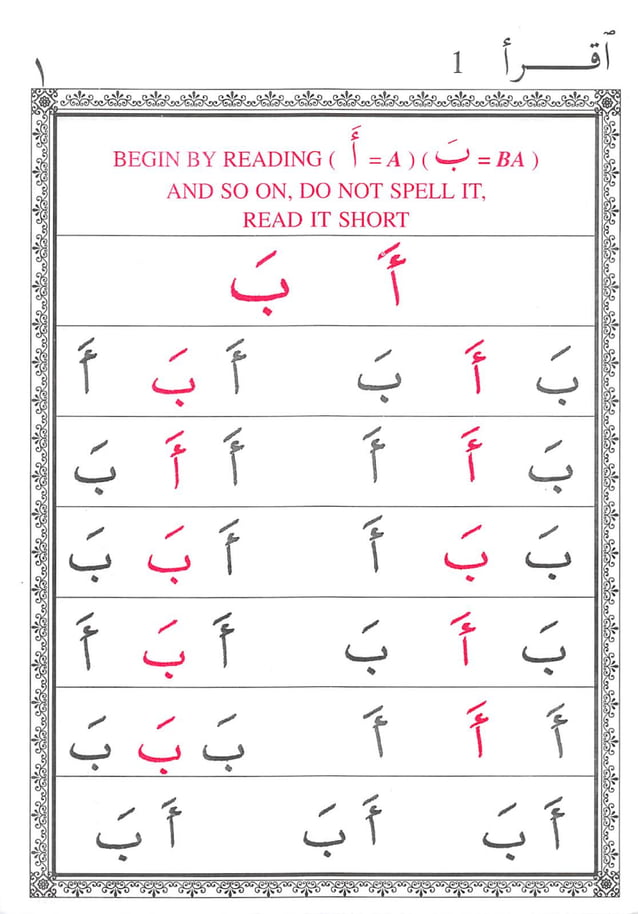 ٱقـــرأ 1 ١
BEGIN BY READING ( أَ = A ) ( بَ = BA )
AND SO ON, DO NOT SPELL IT,
READ IT SHORT
أَ بَ
بَ أَ بَ أَ بَ أَ
بَ أَ أَ أَ أَ بَ
بَ بَ أَ أَ بَ بَ
بَ أَ بَ أَ بَ أَ
أَ أَ أَ بَ بَ بَ
أَ بَ أَ بَ أَ بَ